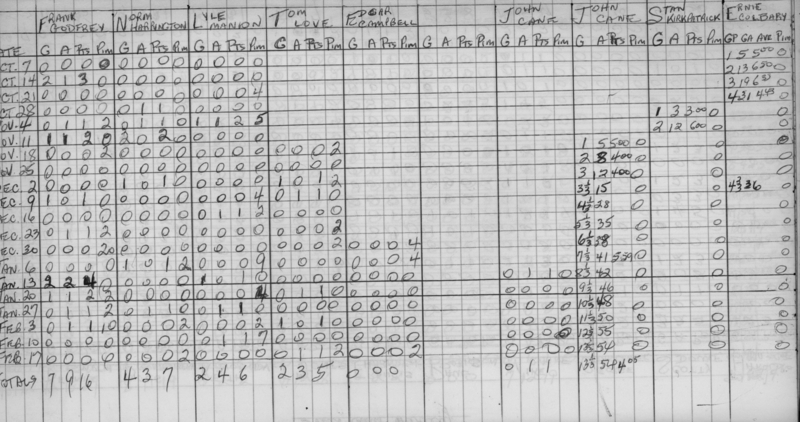 FRANK GODFREY NORM HARRINGTON LYLE MANION TOM LOVE EDGAR CAMPBELL JOHN CANE JOHN CANE STAN KIRKPATRICK ERNIE COLBARY
G A Pts Pim G A Pts Pim G A Pts Pim G A Pts Pim G A Pts Pim G A Pts Pim G A Pts Pim G A Pts Pim G A Pts Pim GP GA AVE Pim
CT. 7 0 0 0 0 0 0 0 0 0 0 0 0 1 5 500 0
CT. 14 2 1 3 0 0 0 0 0 0 0 0 0 2 13 650 0
CT. 21 0 0 0 0 0 0 0 0 0 0 0 4 3 19 0
CT. 28 0 0 0 0 0 1 1 0 0 0 0 0 4 31 0
OV. 4 0 1 1 2 0 1 1 0 1 1 2 5 1 3 300 0 0
OV. 11 1 1 2 0 2 0 2 0 0 0 0 0 2 12 600 0 0
OV. 18 0 0 0 2 0 0 0 0 0 0 0 0 0 0 0 2 1 5 500 0 0
OV. 25 0 0 0 0 0 0 0 0 0 0 0 0 0 0 0 0 2 8 400 0 0 0
EC. 2 0 0 0 0 1 0 1 0 0 0 0 0 1 0 1 2 3 12 400 0 0 0
EC. 9 1 0 1 0 0 0 0 0 0 0 0 4 0 1 1 0 15 0 0 36 0
EC. 16 0 0 0 0 0 0 0 0 0 1 1 2 0 0 0 0 28 0 0 0
EC. 23 0 1 1 2 0 0 0 0 0 0 0 0 0 0 0 2 35 0 0 0
EC. 30 0 0 0 20 0 0 0 0 0 0 0 0 0 0 0 2 0 0 0 4 38 0 0 0
AN. 6 0 0 0 0 1 0 1 2 0 0 0 9 0 0 0 0 0 0 0 4 41 0 0 0
AN. 13 2 2 4 0 0 0 0 0 1 0 1 0 0 0 0 0 0 0 0 0 0 1 1 0 42 0 0 0
AN. 20 1 1 2 2 0 0 0 0 0 0 0 4 0 1 1 0 0 0 0 0 0 0 0 0 46 0 0 0
AN. 27 0 1 1 2 0 1 1 0 0 1 1 0 0 0 0 0 0 0 0 0 0 0 0 0 48 0 0 0
FEB. 3 0 1 1 0 0 0 0 2 0 0 0 2 1 0 1 0 0 0 0 0 0 0 0 0 50 0 0 0
FEB. 10 0 0 0 0 0 0 0 0 0 1 1 7 0 0 0 0 0 0 0 0 0 0 0 0 55 0 0 0
FEB. 17 0 0 0 0 0 0 0 2 0 0 0 0 0 1 1 2 0 0 0 2 0 0 0 0 54 0 0 0
TOTALS 7 9 16 4 3 7 2 4 6 2 3 5 0 0 0 0 1 1 54